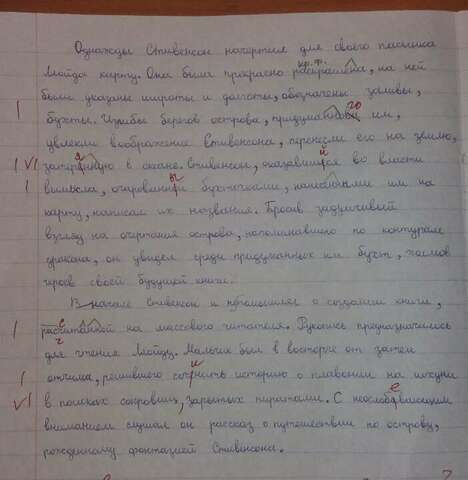 Однажды Стивенсон начертил для своего пасынка
Ллойда карту. Она была прекрасно раскрашена, на ней
были указаны широты и долготы, обозначены заливы,
бухты. Изгибы берегов острова, придуманного им,
увлекли воображение Стивенсона, перенесли его на землю,
затерянную в океане. Стивенсон, оказавшийся во власти
вымысла, очарованный бухточками, нанесёнными им на
карту, написал их названия. Бросив задумчивый
взгляд на очертания острова, напоминавшего по контурам
дракона, он увидел среди придуманных им бухт, холмов
героев своей будущей книги.
В начале Стивенсон и не помышлял о создании книги,
расчитанной на массового читателя. Рукопись предназначалась
для чтения Ллойду. Мальчик был в восторге от затеи
отчима, решившего сочинить историю о плавании на шхуне
в поисках сокровищ, зарытых пиратами. С неослабевающим
вниманием слушал он рассказ о путешествии по острову,
рождённому фантазией Стивенсона.